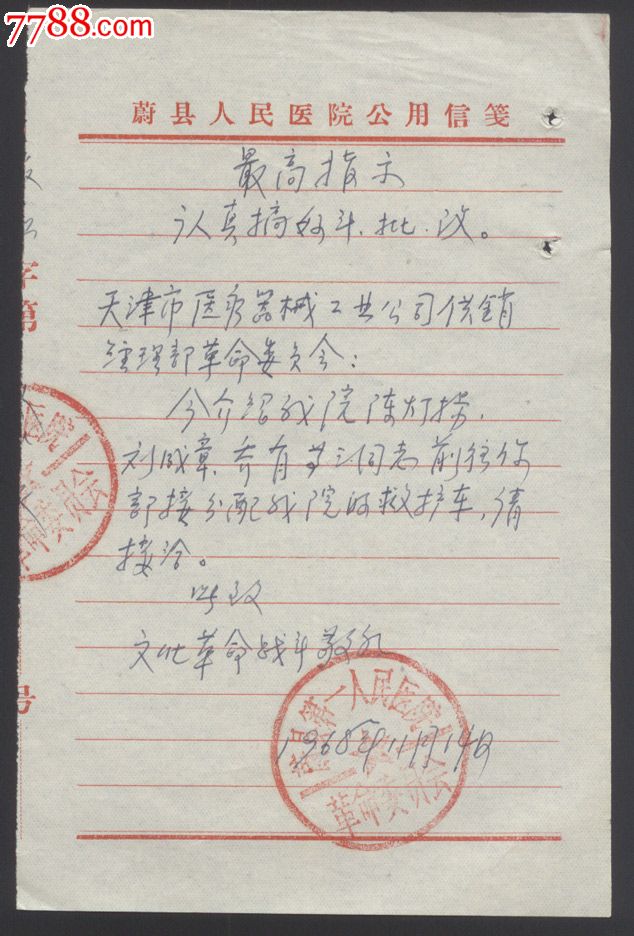 7788.com
蔚县人民医院公用信笺
最高指示
认真搞好斗.批.改。
天津市医疗器械工业公司供销
经理部革命委员会:
今介绍我院陈灯
刘成章.乔有 三同志前往你
部接分配我院的救护车,请
接洽。
此致
文化革命战斗敬礼
1968年11月14日
县第一人民医院
革命委员会
字第
号
医院
革命委员会